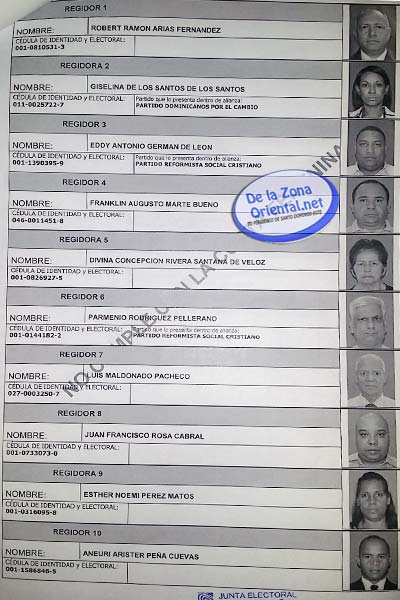 REGIDOR 1
NOMBRE: ROBERT RAMON ARIAS FERNANDEZ
CÉDULA DE IDENTIDAD y ELECTORAL:
001-0810531-3
REGIDORA 2
NOMBRE: GISELINA DE LOS SANTOS DE LOS SANTOS
CÉDULA DE IDENTIDAD y ELECTORAL: Partido que lo presenta dentro de alianza:
011-0025722-7 PARTIDO DOMINICANOS POR EL CAMBIO
REGIDOR 3
NOMBRE: EDDY ANTONIO GERMAN DE LEON
CÉDULA DE IDENTIDAD y ELECTORAL: Partido que lo presenta dentro de alianza:
001-1390395-9 PARTIDO REFORMISTA SOCIAL CRISTIANO
REGIDOR 4
NOMBRE: FRANKLIN AUGUSTO MARTE BUENO
CÉDULA DE IDENTIDAD y ELECTORAL:
046-0011451-8
De la Zona
Oriental.net
REGIDORA 5
NOMBRE: DIVINA CONCEPCION RIVERA SANTANA DE VELOZ
CÉDULA DE IDENTIDAD y ELECTORAL:
001-0826927-5
REGIDOR 6
NOMBRE: PARMENIO RODRIGUEZ PELLERANO
CÉDULA DE IDENTIDAD y ELECTORAL: Partido que lo presenta dentro de alianza:
001-0144182-2 PARTIDO REFORMISTA SOCIAL CRISTIANO
REGIDOR 7
NOMBRE: LUIS MALDONADO PACHECO
CÉDULA DE IDENTIDAD y ELECTORAL:
027-0003250-7
REGIDOR 8
NOMBRE: JUAN FRANCISCO ROSA CABRAL
CÉDULA DE IDENTIDAD y ELECTORAL:
001-0733073-0
REGIDORA 9
NOMBRE: ESTHER NOEMI PEREZ MATOS
CÉDULA DE IDENTIDAD y ELECTORAL:
001-0316095-8
REGIDOR 10
NOMBRE: ANEURI ARISTER PEÑA CUEVAS
CÉDULA DE IDENTIDAD y ELECTORAL:
001-1586846-5
NO CUMPLE CON LA
JUNTA ELECTORAL